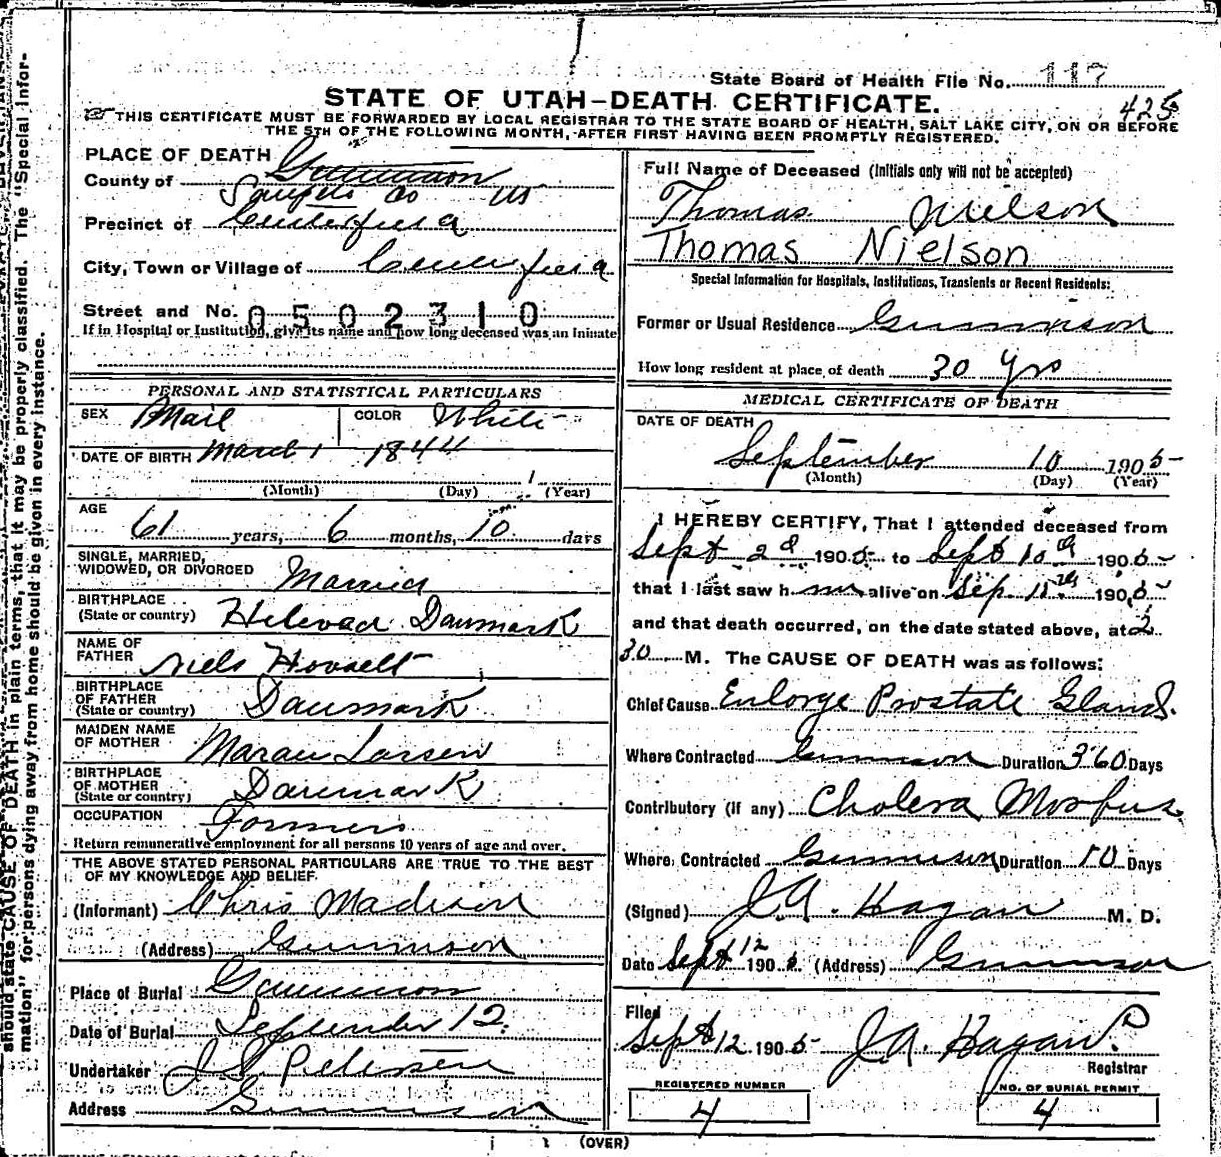 State Board of Health File No. 117
STATE OF UTAH-DEATH CERTIFICATE.
425
THIS CERTIFICATE MUST BE FORWARDED BY LOCAL REGISTRAR TO THE STATE BOARD OF HEALTH, SALT LAKE CITY, ON OR BEFORE
THE 5TH OF THE FOLLOWING MONTH, AFTER FIRST HAVING BEEN PROMPTLY REGISTERED.
should state CAUSE OF DEATH in plain terms, that it may be properly classified. The "Special Infor-
mation" for persons dying away from home should be given in every instance.
PLACE OF DEATH
County of Gunnison
Co
Precinct of Centerfield
City, Town or Village of Centerfield
Street and No. 0502310
If in Hospital or Institution, give its name and how long deceased was an Inmate
PERSONAL AND STATISTICAL PARTICULARS
SEX Mail COLOR White
DATE OF BIRTH March 1 1844
(Month) (Day) (Year)
AGE
61 years, 6 months, 10 days
SINGLE, MARRIED,
WIDOWED, OR DIVORCED Married
BIRTHPLACE
(State or country) Danmark
NAME OF
FATHER Niels
BIRTHPLACE
OF FATHER
(State or country) Danmark
MAIDEN NAME
OF MOTHER Maran Larsen
BIRTHPLACE
OF MOTHER
(State or country) Danmark
OCCUPATION Farmer
Return remunerative employment for all persons 10 years of age and over.
THE ABOVE STATED PERSONAL PARTICULARS ARE TRUE TO THE BEST
OF MY KNOWLEDGE AND BELIEF.
(Informant) Chris Madison
(Address) Gunnison
Place of Burial Gunnison
Date of Burial September 12
Undertaker Petersen
Address Gunnison
Full Name of Deceased (Initials only will not be accepted)
Thomas Nielson
Thomas Nielson
Special Information for Hospitals, Institutions, Transients or Recent Residents:
Former or Usual Residence Gunnison
How long resident at place of death 30 Yrs
MEDICAL CERTIFICATE OF DEATH
DATE OF DEATH
September 10 1905
(Month) (Day) (Year)
I HEREBY CERTIFY, That I attended deceased from
Sept 2d 1905 to Sept 10th 1905
that I last saw him alive on Sep. 11th 1905
and that death occurred, on the date stated above, at 2
30 M. The CAUSE OF DEATH was as follows:
Chief Cause Enlorge Prostate Gland.
Where Contracted Gunnison Duration 360 Days
Contributory (if any) Cholera Morbus
Where Contracted Gunnison Duration 10 Days
(Signed) J.A. Hagan M. D.
Date Sept 12 1905. (Address) Gunnison
Filed
Sept 12 1905 J.A. Hagan
Registrar
REGISTERED NUMBER
4
NO. OF BURIAL PERMIT
4
(OVER)